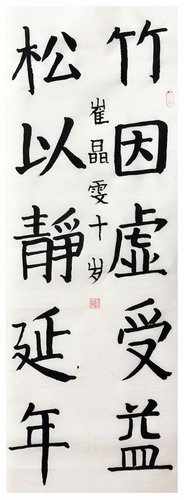 竹因虚受益
松以静延年
崔晶雯十岁